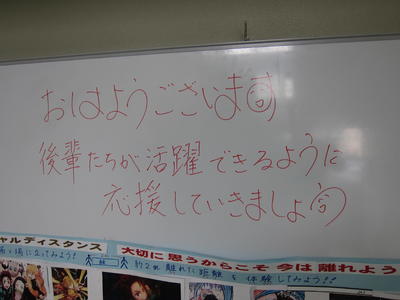 おはようございます
後輩たちが活躍できるように
応援していきましょう
ャルディスタンス 大切に思うからこそ 今は離れよう
約2m 離れた距離を体験してみよう!!